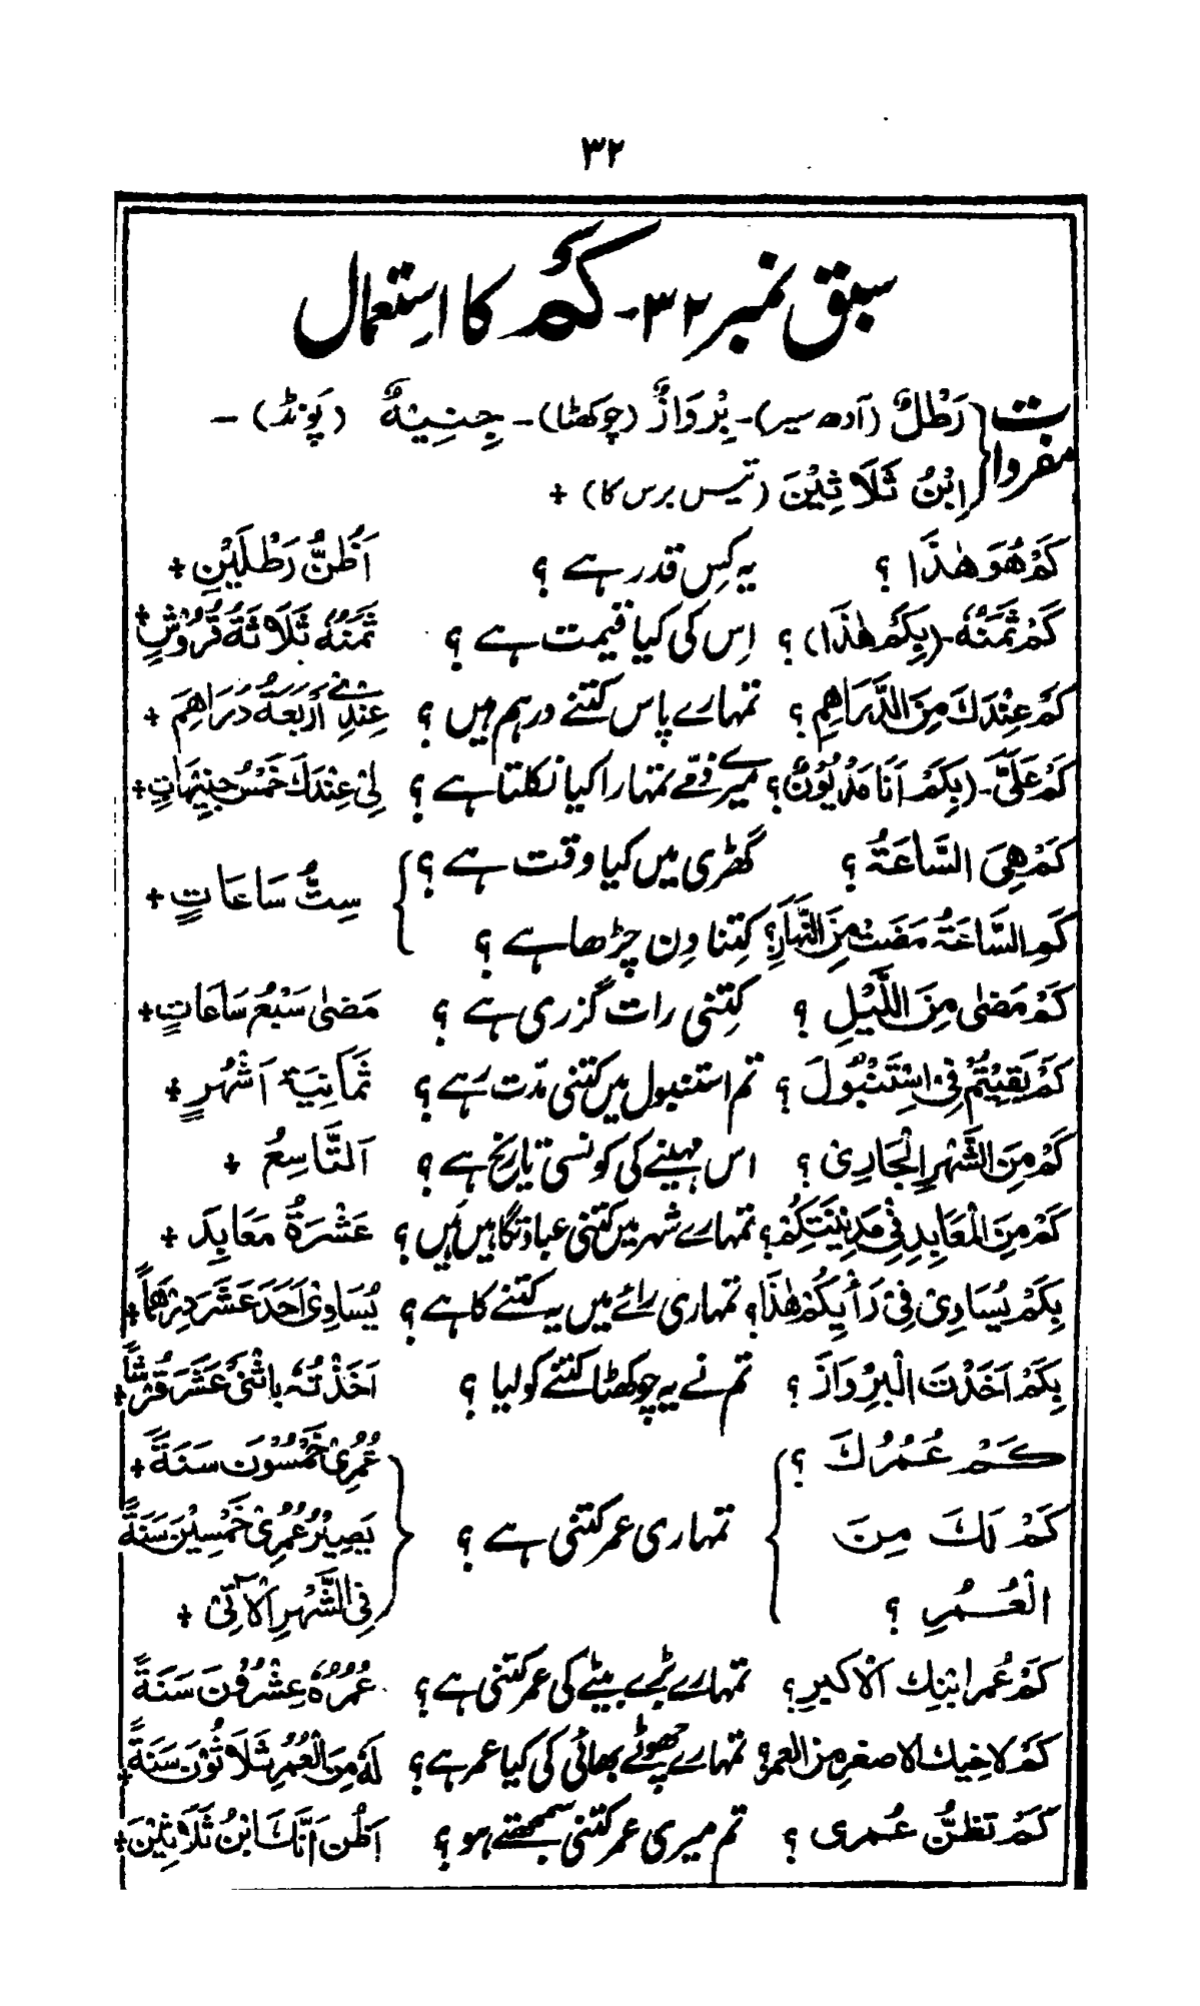 ۳۲
سبق نمبر ۳۲ - کَمْ کا استعمال
مفردات { رَطْلٌ (آدھ سیر) - بِرْوَازٌ (چوکھٹا) - جِنِیْهٌ (پَونڈ) -
اِبْنُ ثَلَاثِیْنَ (تیس برس کا) +
کَمْ هُوَ هٰذَا ؟ یہ کِس قدر ہے ؟ اَظُنُّ رَطْلَیْنِ +
کَمْ ثَمَنُهٗ - (بِکَمْ هٰذَا) ؟ اِس کی کیا قیمت ہے ؟ ثَمَنُهٗ ثَلَاثَةُ قُرُوْشٍ +
کَمْ عِنْدَكَ مِنَ الدَّرَاهِمِ ؟ تمہارے پاس کتنے درہم ہیں ؟ عِنْدِیْ اَرْبَعَةُ دَرَاهِمَ +
کَمْ عَلَیَّ - (بِکَمْ اَنَا مَدْیُوْنٌ ؟ میرے ذمّے تمہارا کیا نکلتا ہے ؟ لِیْ عِنْدَكَ خَمْسُ جِنِیْهَاتٍ +
کَمْ هِیَ السَّاعَةُ ؟ گھڑی میں کیا وقت ہے ؟ { سِتُّ سَاعَاتٍ +
کَمِ السَّاعَةُ مَضَتْ مِنَ النَّهَارِ ؟ کِتنا دِن چڑھا ہے ؟
کَمْ مَضٰی مِنَ اللَّیْلِ ؟ کِتنی رات گزری ہے ؟ مَضٰی سَبْعُ سَاعَاتٍ +
کَمْ بَقِیْتُمْ فِیْ اِسْتَنْبُوْلَ ؟ تم استنبول میں کتنی مدّت رہے ؟ ثَمَانِیَةَ اَشْهُرٍ +
کَمْ مِنَ الشَّهْرِ الْجَارِیْ ؟ اس مہینے کی کونسی تاریخ ہے ؟ اَلتَّاسِعُ +
کَمْ مِنَ الْمَعَابِدِ فِیْ مَدِیْنَتِکُمْ ؟ تمہارے شہر میں کتنی عبادتگاہیں ہَیں ؟ عَشْرَةُ مَعَابِدَ +
بِکَمْ یُسَاوِیْ فِیْ رَأْیِکُمْ هٰذَا ؟ تمہاری رائے میں یہ کتنے کا ہے ؟ یُسَاوِیْ اَحَدَ عَشَرَ دِرْهَمًا +
بِکَمْ اَخَذْتَ الْبِرْوَازَ ؟ تم نے یہ چوکھٹا کتنے کو لیا ؟ اَخَذْتُهٗ بِاثْنَیْ عَشَرَ قُرْشًا +
کَمْ عُمُرُكَ ؟ عُمُرِیْ خَمْسُوْنَ سَنَةً +
کَمْ لَكَ مِنَ } تمہاری عمر کتنی ہے ؟ { یَصِیْرُ عُمُرِیْ خَمْسِیْنَ سَنَةً
الْعُمُرِ ؟ فِی الشَّهْرِ الْاٰتِیْ +
کَمْ عُمرُ ابْنِكَ الْاَکْبَرِ ؟ تمہارے بڑے بیٹے کی عمر کتنی ہے ؟ عُمُرُهٗ عِشْرُوْنَ سَنَةً
کَمْ لِاَخِیْكَ الاصغرِ مِنَ العمرِ ؟ تمہارے چھوٹے بھائی کی کیا عمر ہے ؟ لَهٗ مِنَ الْعُمُرِ ثَلَاثُوْنَ سَنَةً +
کَمْ تَظُنُّ عُمری ؟ تم میری عمر کتنی سمجھتے ہو ؟ اَظُنُ اَنَّكَ ابْنُ ثَلَاثِیْنَ +